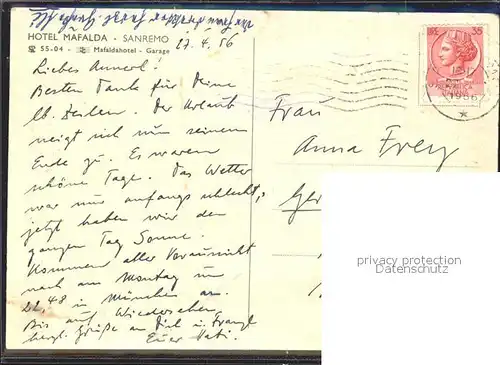 HOTEL MAFALDA - SANREMO
☎ 55-04 - Mafaldahotel - Garage
17.4.56
Liebes Annerl!
Besten Dank für Deine
lb. Zeilen. Der Urlaub
neigt sich nun seinem
Ende zu. Es waren
schöne Tage. Das Wetter
war nur anfangs schlecht,
jetzt haben wir den
ganzen Tag Sonne.
Kommen aller Voraussicht
nach am Montag um
22.48 in München an.
Bis auf Wiedersehen
herzl. Grüße an Dich u. Franzl
Euer
35
1956
Frau
Anna Frey
privacy protection
Datenschutz